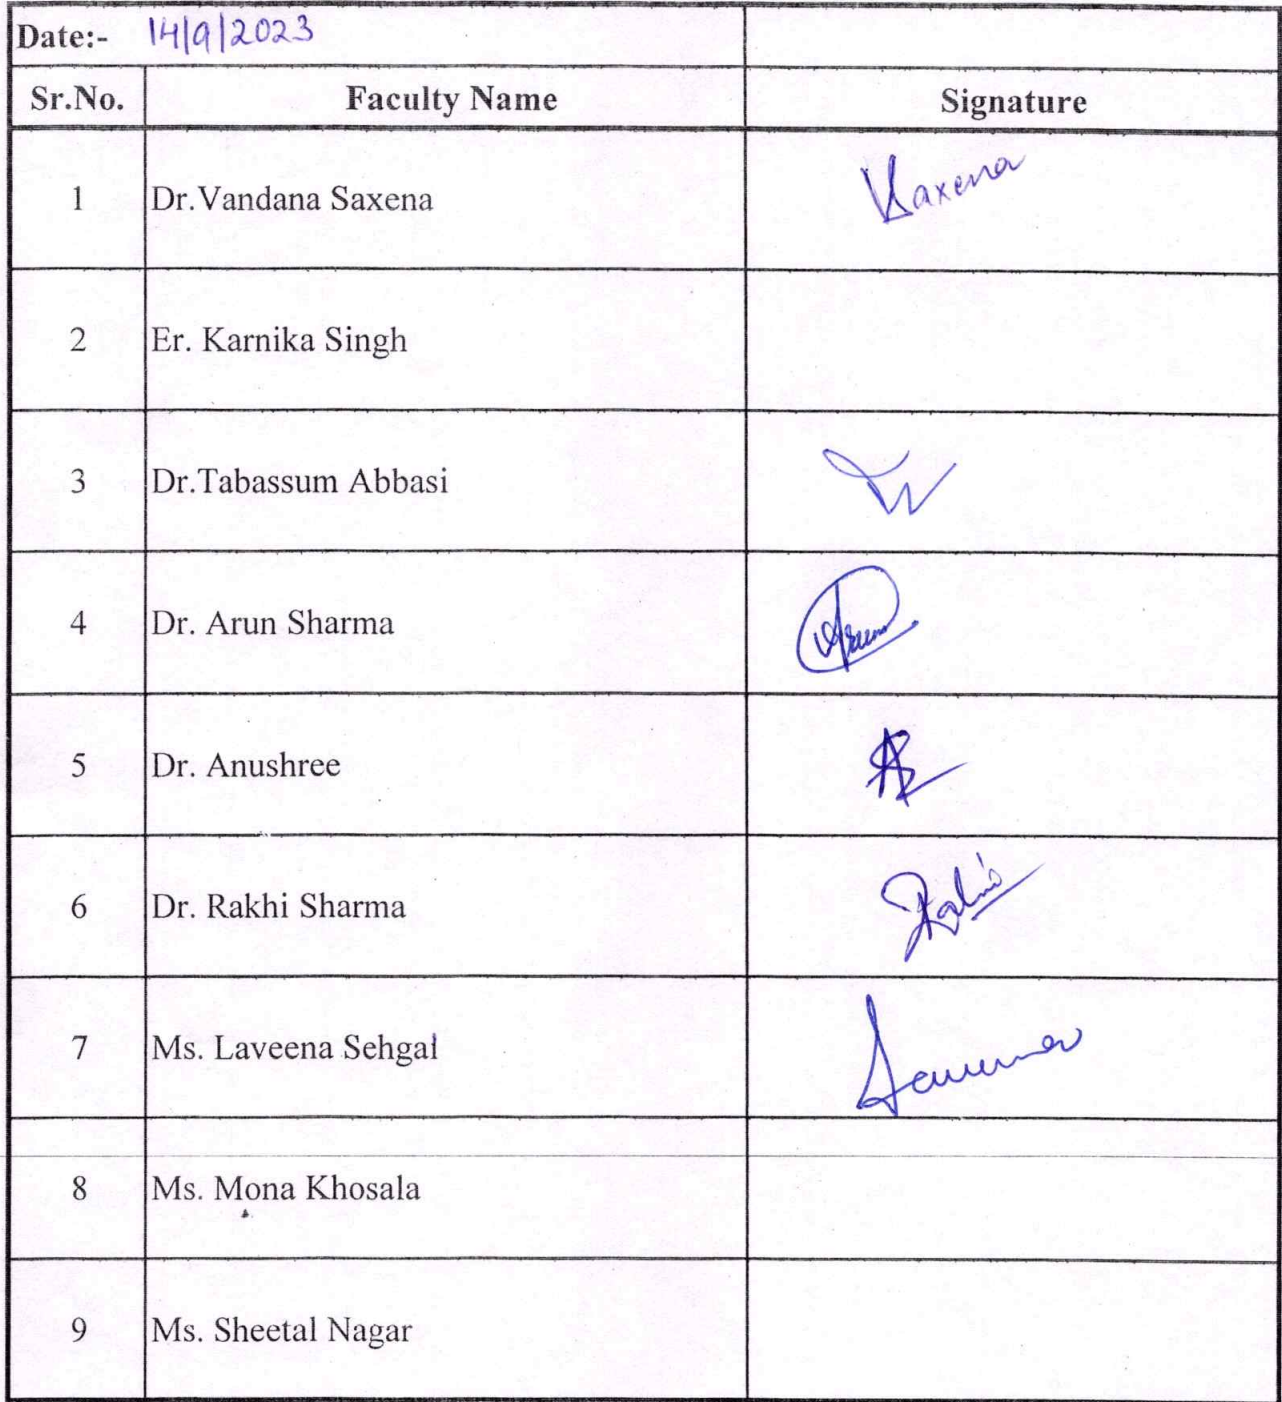 Date:- 14/9/2023
Sr.No. Faculty Name Signature
1 Dr.Vandana Saxena Vsaxena
2 Er. Karnika Singh
3 Dr.Tabassum Abbasi
4 Dr. Arun Sharma Arun
5 Dr. Anushree
6 Dr. Rakhi Sharma Rakhi
7 Ms. Laveena Sehgal
8 Ms. Mona Khosala
9 Ms. Sheetal Nagar